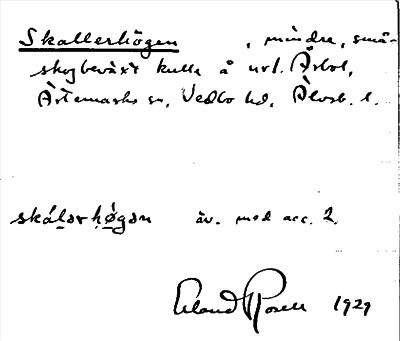 Skallerhögen, mindre, små-
skogbeväxt kulle å urf. Årbol,
Ärtemarks sn, Vedbo hd, Älvsb. l.
skálərhø̀gən äv. med acc. 2.
Erland Rosell 1929